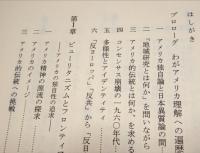 はしがき
プロローグ わがアメリカ理解への遍歴
一 アメリカ独自論と日本異質論の間
二 「地域研究とは何か」を問いながら
三 アメリカ的伝統とは何か、を求める
四 コンセンサス崩壊の一九六〇年代
五 多様性とアイデンティティ
六 「反ヨーロッパ」「反共」から「反日
第1章 ピューリタニズムとフロンティ
アメリカの独自性の追求
一 アメリカ精神の源流の探求
二 アメリカのイメージ
三 アメリカ的伝統への挑戦